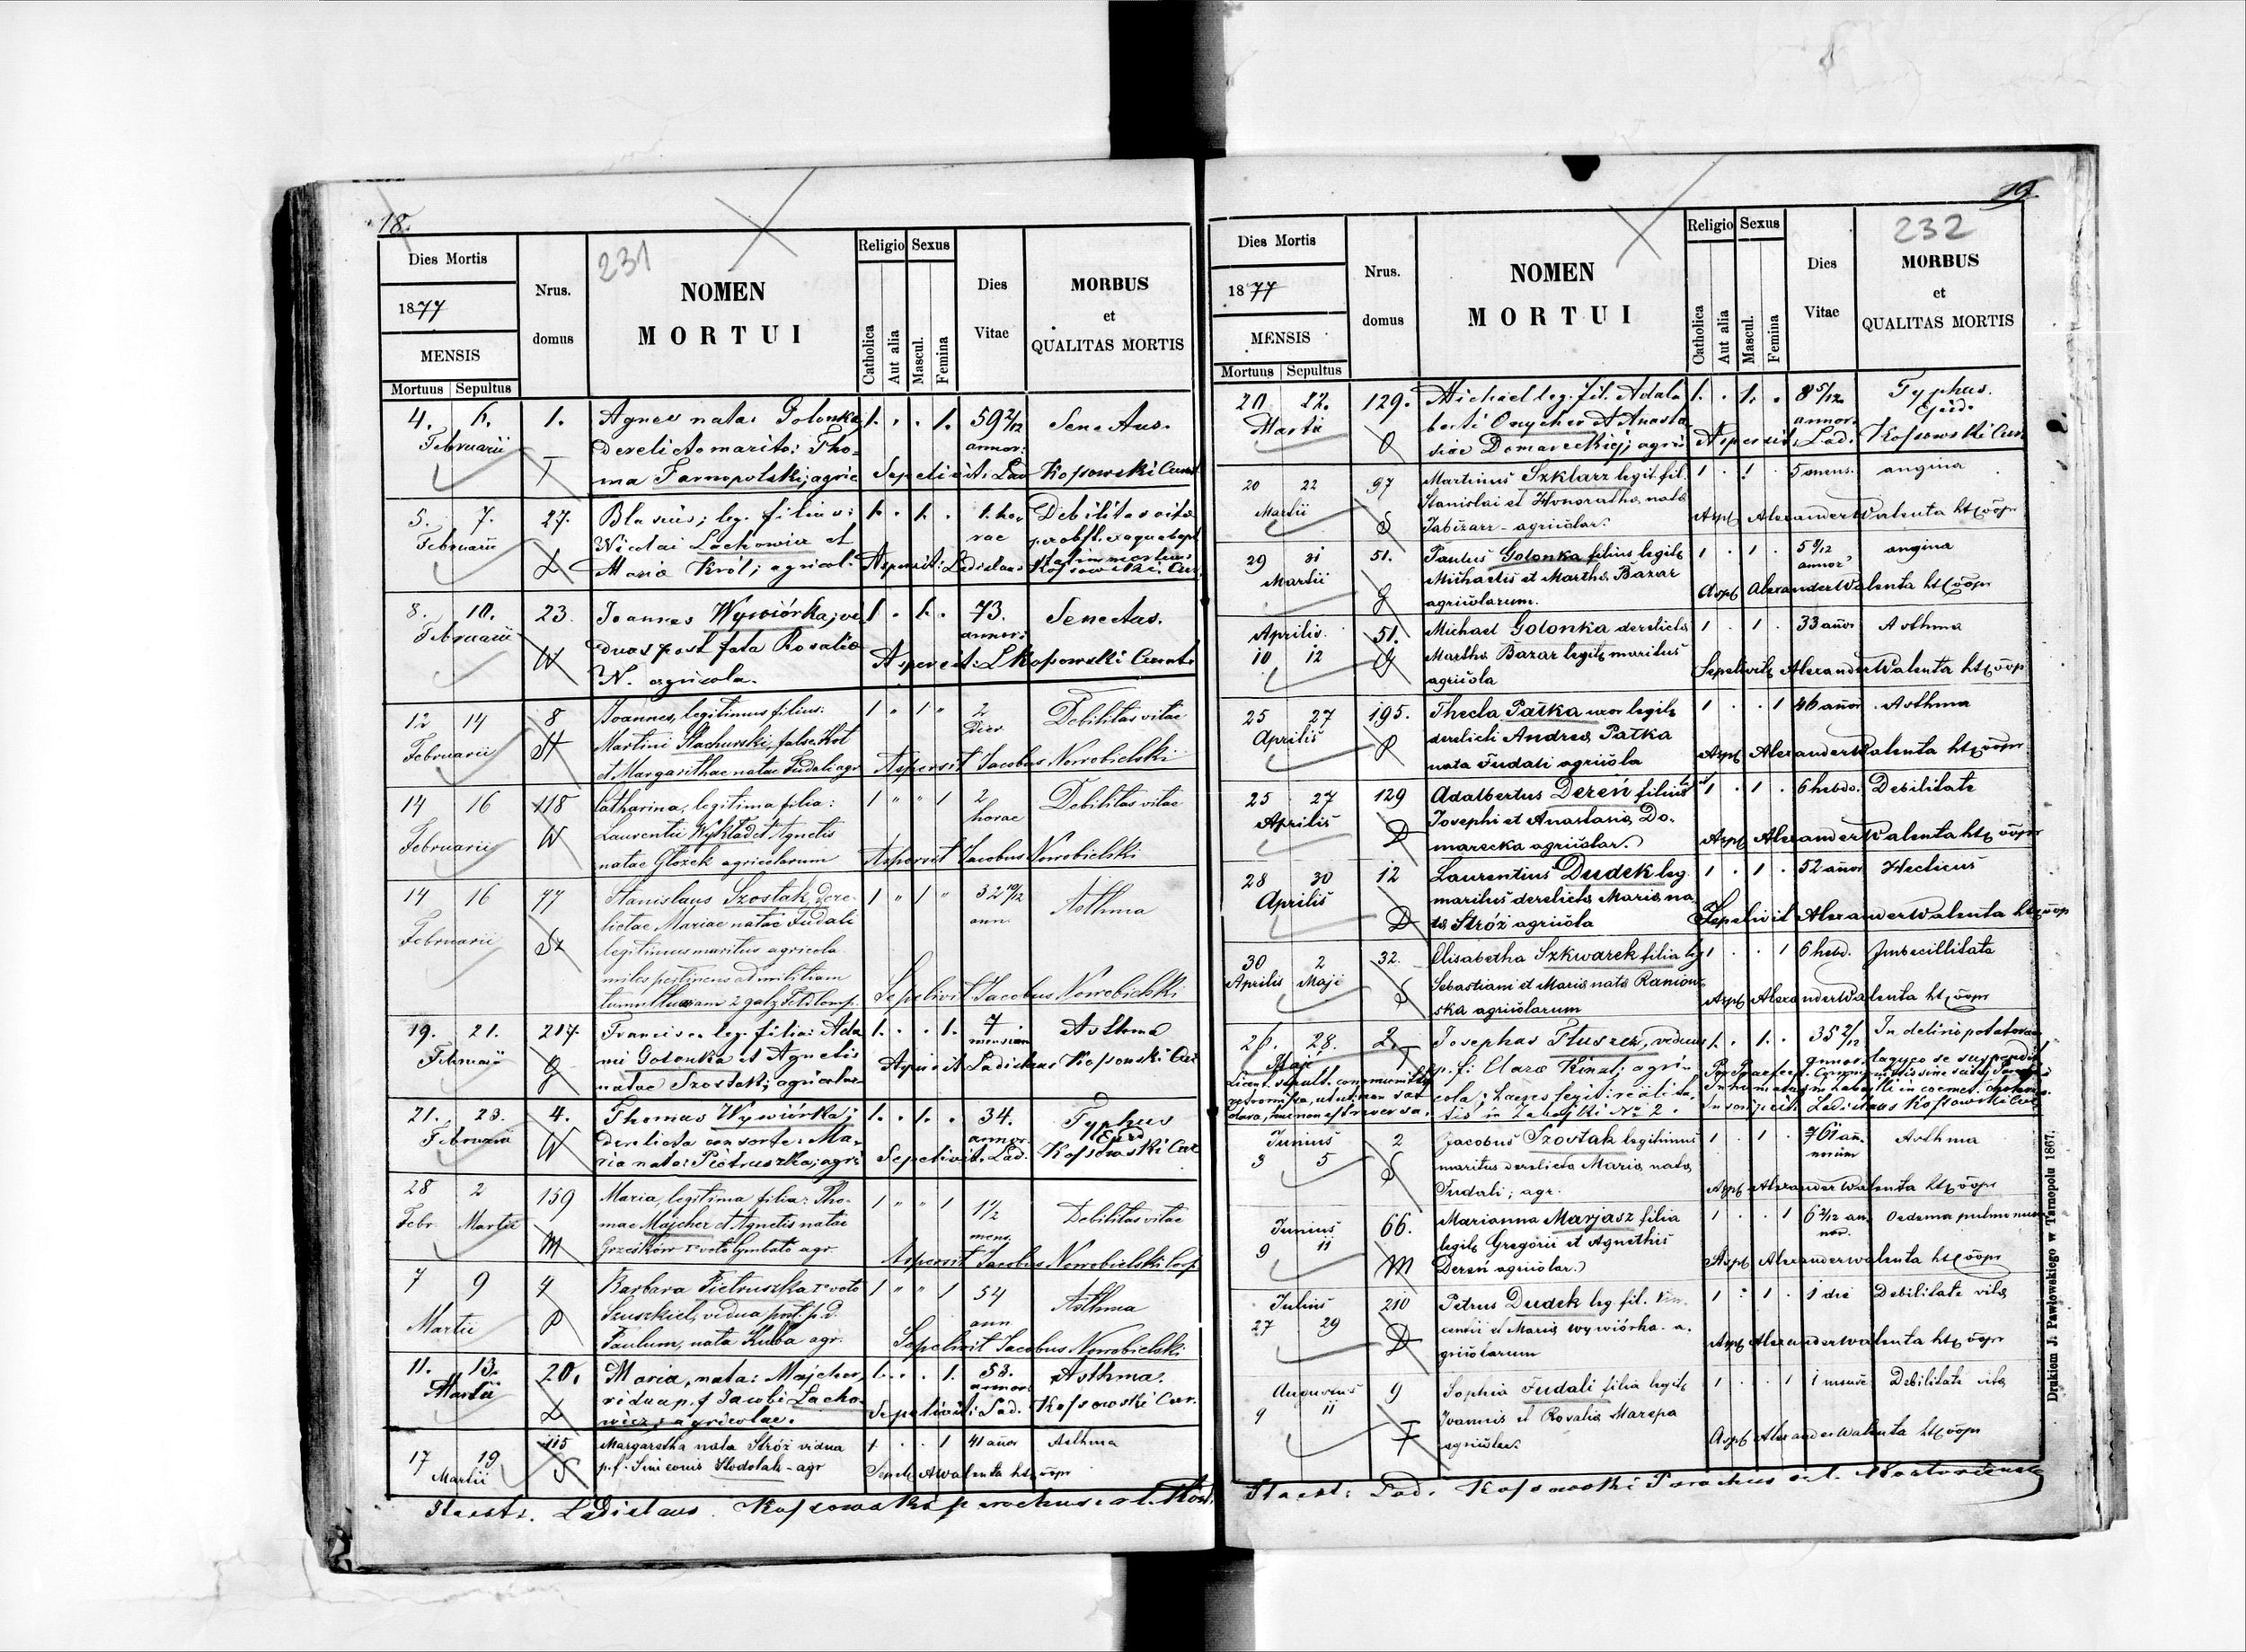 18.
231
Dies Mortis
1877
MENSIS
Mortuus Sepultus
Nrus. domus
NOMEN
MORTUI
Religio Sexus
Catholica
Aut alia
Mascul.
Femina
Dies Vitae
MORBUS
et
QUALITAS MORTIS
4. 6. 1. Agnes nata: Golonka 1. . . 1. 59 2/12 Senectus.
Februarii derelicto marito: Tho- annor:
T ma Tarnopolski; agric Sepelivit: Lad Kossowski Curat
5. 7. 27. Blasius; leg. filius: 1. . 1. . 1. ho- Debilitas vitae
Februarii Nicolai Lachowicz et rae
L Maria Król; agricol. Aspersit: Ladislaus Kossowski. Cur.
8. 10. 23. Joannes Wywiórka; vi 1. . 1. . 73. Senectus.
Februarii duus post fata Rosalia annor:
W N. agricola. Aspersit: L Kossowski Curat
12 14 8 Joannes, legitimus filius: 1 " 1 " 2 Debilitas vitae
Februarii St Martini Stachurski, false Kot dier
et Margarithae natae Fudali agr Aspersit Jacobus Nowobielski
14 16 118 Catharina, legitima filia: 1 " " 1 2 Debilitas vitae
Februarii W Laurentii Wykład et Agnetis horae
natae Głozek agricolarum Aspersit Jacobus Nowobielski
14 16 77 Stanislaus Szostak, Dere- 1 " 1 " 32 10/12 Asthma
Februarii Sz lictae Mariae natae Fudali ann
legitimus maritus agricola
miles pertinens ad militiam
Sepelivit Jacobus Nowobielski
19. 21. 217. Francisca leg. filia: Ada 1. . . 1. 7 Asthma
Februarii mi Golonka et Agnetis mensium
G natae Szostak; agricolar Aspersit Ladislaus Kossowski Cur
21. 23. 4. Thomas Wywiórka; 1. . 1. . 34. Typhus
Februarii derelicta consorte: Ma- annor.
W ria nata: Pietruszka; agri Sepelivit. Lad. Kossowski Cur
28 2 159 Maria, legitima filia: Tho- 1 " " 1 1 1/2 Debilitas vitae
Febr. Martii mae Majcher et Agnetis natae mens
M voto agr. Aspersit Jacobus Nowobielski
7 9 4 Barbara Pietruszka voto 1 " " 1 54 Asthma
Martii P Szuszkiel, vidua post. p. d. ann
Paulum, nata Kuba agr. Sepelivit Jacobus Nowobielski
11. 13. 20. Maria, nata: Majcher, 1. . . 1. 53. Asthma.
Martii vidua p. f Jacobi Lacho- annor
L wicz; agricolae. Sepelivit: Lad. Kossowski Cur.
17 19 115 Margaretha nata Stróż vidua 1 . . 1 41 años Asthma
Martii S p. f. Simeonis Stodolak - agr
Ladislaus Kossowski parochus
19.
232
Dies Mortis
1877
MENSIS
Mortuus Sepultus
Nrus. domus
NOMEN
MORTUI
Religio Sexus
Catholica
Aut alia
Mascul.
Femina
Dies Vitae
MORBUS
et
QUALITAS MORTIS
20. 22. 129. Michael leg. fil. Adal 1. . 1. . 8 5/12 Typhus.
Martii berti Onycher Et Anasta annor.
O siae Domareckiej; agri Aspersit: Lad. Kossowski Cur
20 22 97 Martinus Szklarz legit. fil. 1 . 1 . 5 mens. angina
Martii S Stanislai et Honoratha nata
agricolar. Asps Alexander Walenta
29 31 51. Paulus Golonka filius legit 1 . 1 . angina
Martii G Michaelis et Martha Bazar annor
agricolarum. Asps Alexander Walenta
Aprilis 51. Michael Golonka derelicta 1 . 1 . 33 años Asthma
10 12 G Martha Bazar legit maritus
agricola Sepelivit Alexander Walenta
25 27 195. Thecla Pałka uxor legit 1 . . 1 46 años Asthma
Aprilis P derelicti Andreas Pałka
nata Fudali agricola Asps Alexander Walenta
25 27 129 Adalbertus Dereń filius 1 . 1 . 6 hebdo. Debilitate
Aprilis D Josephi et Anastasia Do-
marecka agricolar. Asps Alexander Walenta
28 30 12 Laurentius Dudek leg. 1 . 1 . 52 años Hecticus
Aprilis D maritus derelicta Maria na
ta Stróż agricola Sepelivit Alexander Walenta
30 2 32. Elisabetha Szkwarek filia leg 1 . . 1 6 hebd. Imbecillitate
Aprilis Maji S Sebastiani et Maria nata Raniow-
ska agricolarum Asps Alexander Walenta
26. 28. 2. Josephus Tłuszcz, viduus 1. . 1. . 35 2/12 In delirio potatorum
Maji T p. f: Clara Kinal; agri- annor. laqueo se suspendit
Ladislaus Kossowski Cur
Junius 2 Jacobus Szostak legitimus 1 . 1 . 61 an- Asthma
3 5 S maritus derelicta Maria nata norum
Fudali; agr. Asps Alexander Walenta
Junius 66. Marianna Marjasz filia 1 . . 1 6 2/12 an Oedema pulmonum
9 11 M legit Gregorii et Agnethis nor.
Dereń agricolar. Asps Alexander Walenta
Julius 210 Petrus Dudek leg fil. Vin- 1 . 1 . 1 die Debilitate vita
27 29 D centii et Maria Wywiórka a-
gricolarum Asps Alexander Walenta
Augustus 9 Sophia Fudali filia legit 1 . . 1 1 mense Debilitate vita
9 11 F Joannis et Rosalia Marepa
agricolar. Asps Alexander Walenta
Lad. Kossowski Parochus
Drukiem J. Pawłowskiego w Tarnopolu 1867.